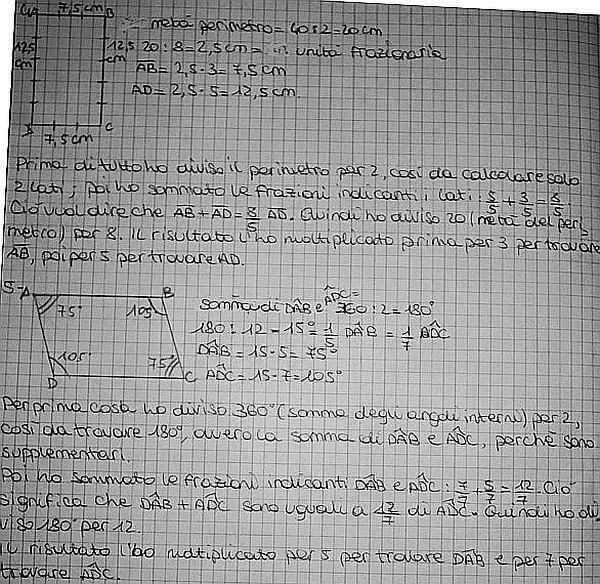 7,5 cm B
metà perimetro = 40:2=20cm
12,5 cm
12,5 cm
20:8=2,5cm= unità frazionaria
AB = 2,5·3=7,5cm
AD=2,5·5=12,5cm.
C
7,5cm
Prima di tutto ho diviso il perimetro per 2, così da calcolare solo
2 lati; poi ho sommato le frazioni indicanti i lati: 5/5 + 3/5 = 8/5.
Ciò vuol dire che AB+AD=8/5 AD. Quindi ho diviso 20 (metà del peri
metro) per 8. Il risultato l'ho moltiplicato prima per 3 per trovare
AB, poi per 5 per trovare AD.
5- A B
75° 105°
105° 75°
D C
somma di DÂB e ADC= 360:2=180°
180:12 = 15° = 1/5 DÂB = 1/7 ADC
DÂB = 15·5= 75°
ADC=15·7=105°
Per prima cosa ho diviso 360° (somma degli angoli interni) per 2,
così da trovare 180°, ovvero la somma di DÂB e ADC, perché sono
supplementari.
Poi ho sommato le frazioni indicanti DÂB e ADC: 7/7+5/7=12/7. Ciò
significa che DÂB + ADC sono uguali a 12/7 di ADC. Quindi ho di
viso 180° per 12.
Il risultato l'ho moltiplicato per 5 per trovare DÂB e per 7 per
trovare ADC.